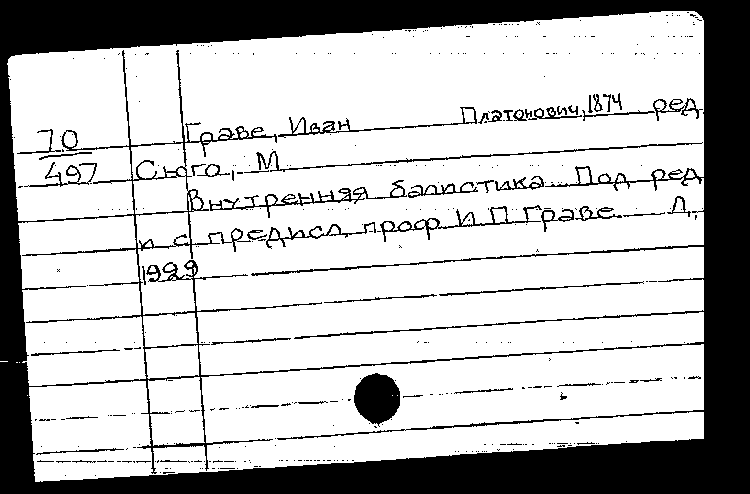 Граве, Иван Платонович, 1874 ред
70
497 Сюго, М.
Внутренняя балистика. Под ред
и с предисл. проф И П Граве. Л.,
1929